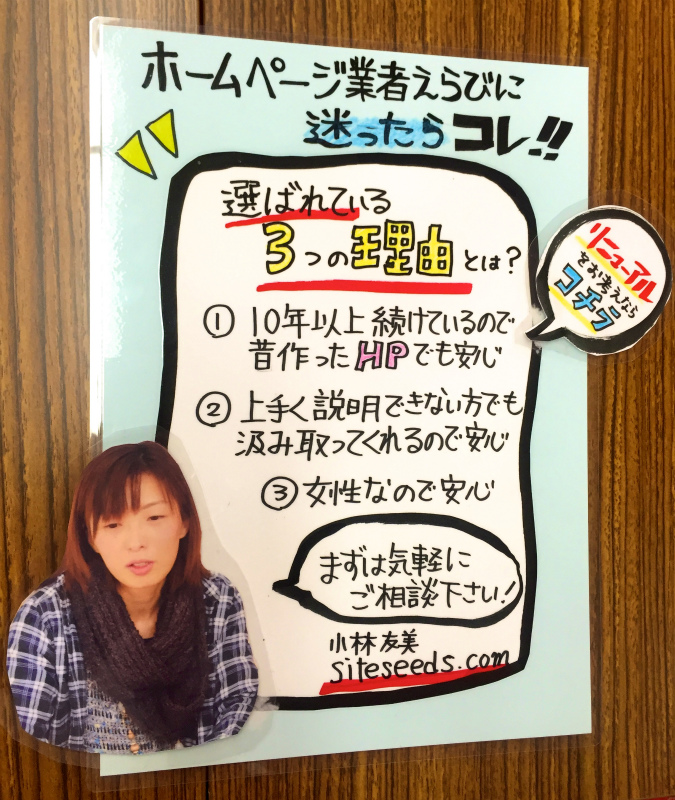 ホームページ業者えらびに
迷ったらコレ!!
選ばれている
3つの理由とは?
① 10年以上続けているので
昔作ったHPでも安心
② 上手く説明できない方でも
汲み取ってくれるので安心
③ 女性なので安心
まずは気軽に
ご相談下さい!
小林友美
siteseeds.com
リニューアル
をお考えなら
コチラ